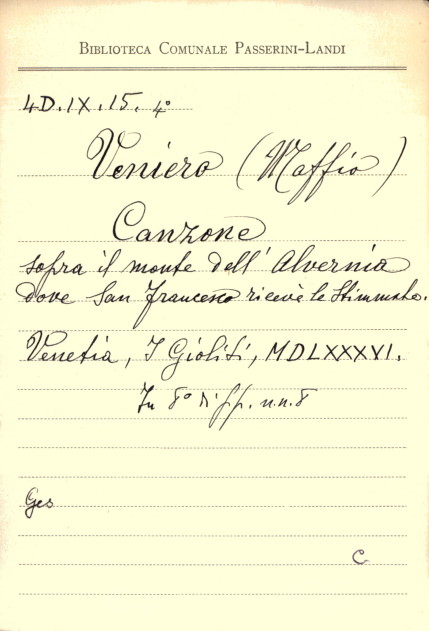 BIBLIOTECA COMUNALE PASSERINI-LANDI
4D.IX.15.4°
Veniero (Maffio)
Canzone
sopra il monte dell'Alvernia
dove San Francesco ricevè le Stimmate.
Venetia, I Gioliti, MDLXXXVI.
In 8° di ff. n.n. 8
Ges
C